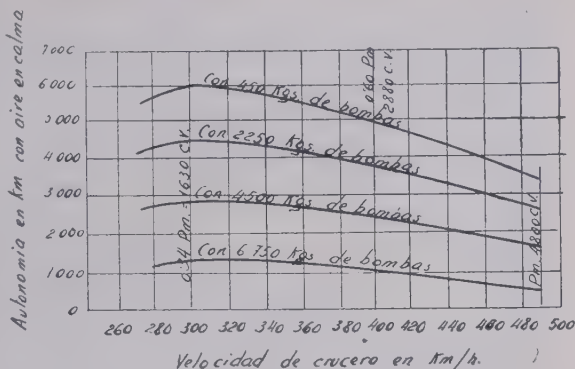 Autonomía en km con aire en calma
7000
6000
5000
4000
3000
2000
1000
0
Con 450 Kgs. de bombas
Con 2250 Kgs. de bombas
Con 4500 Kgs. de bombas
Con 6750 Kgs de bombas
0'34 Pm. = 1630 c.v.
0'60 Pm
2880 c.v.
Pm. 4800 c.v.
260 280 300 320 340 360 380 400 420 440 460 480 500
Velocidad de crucero en Km/h.